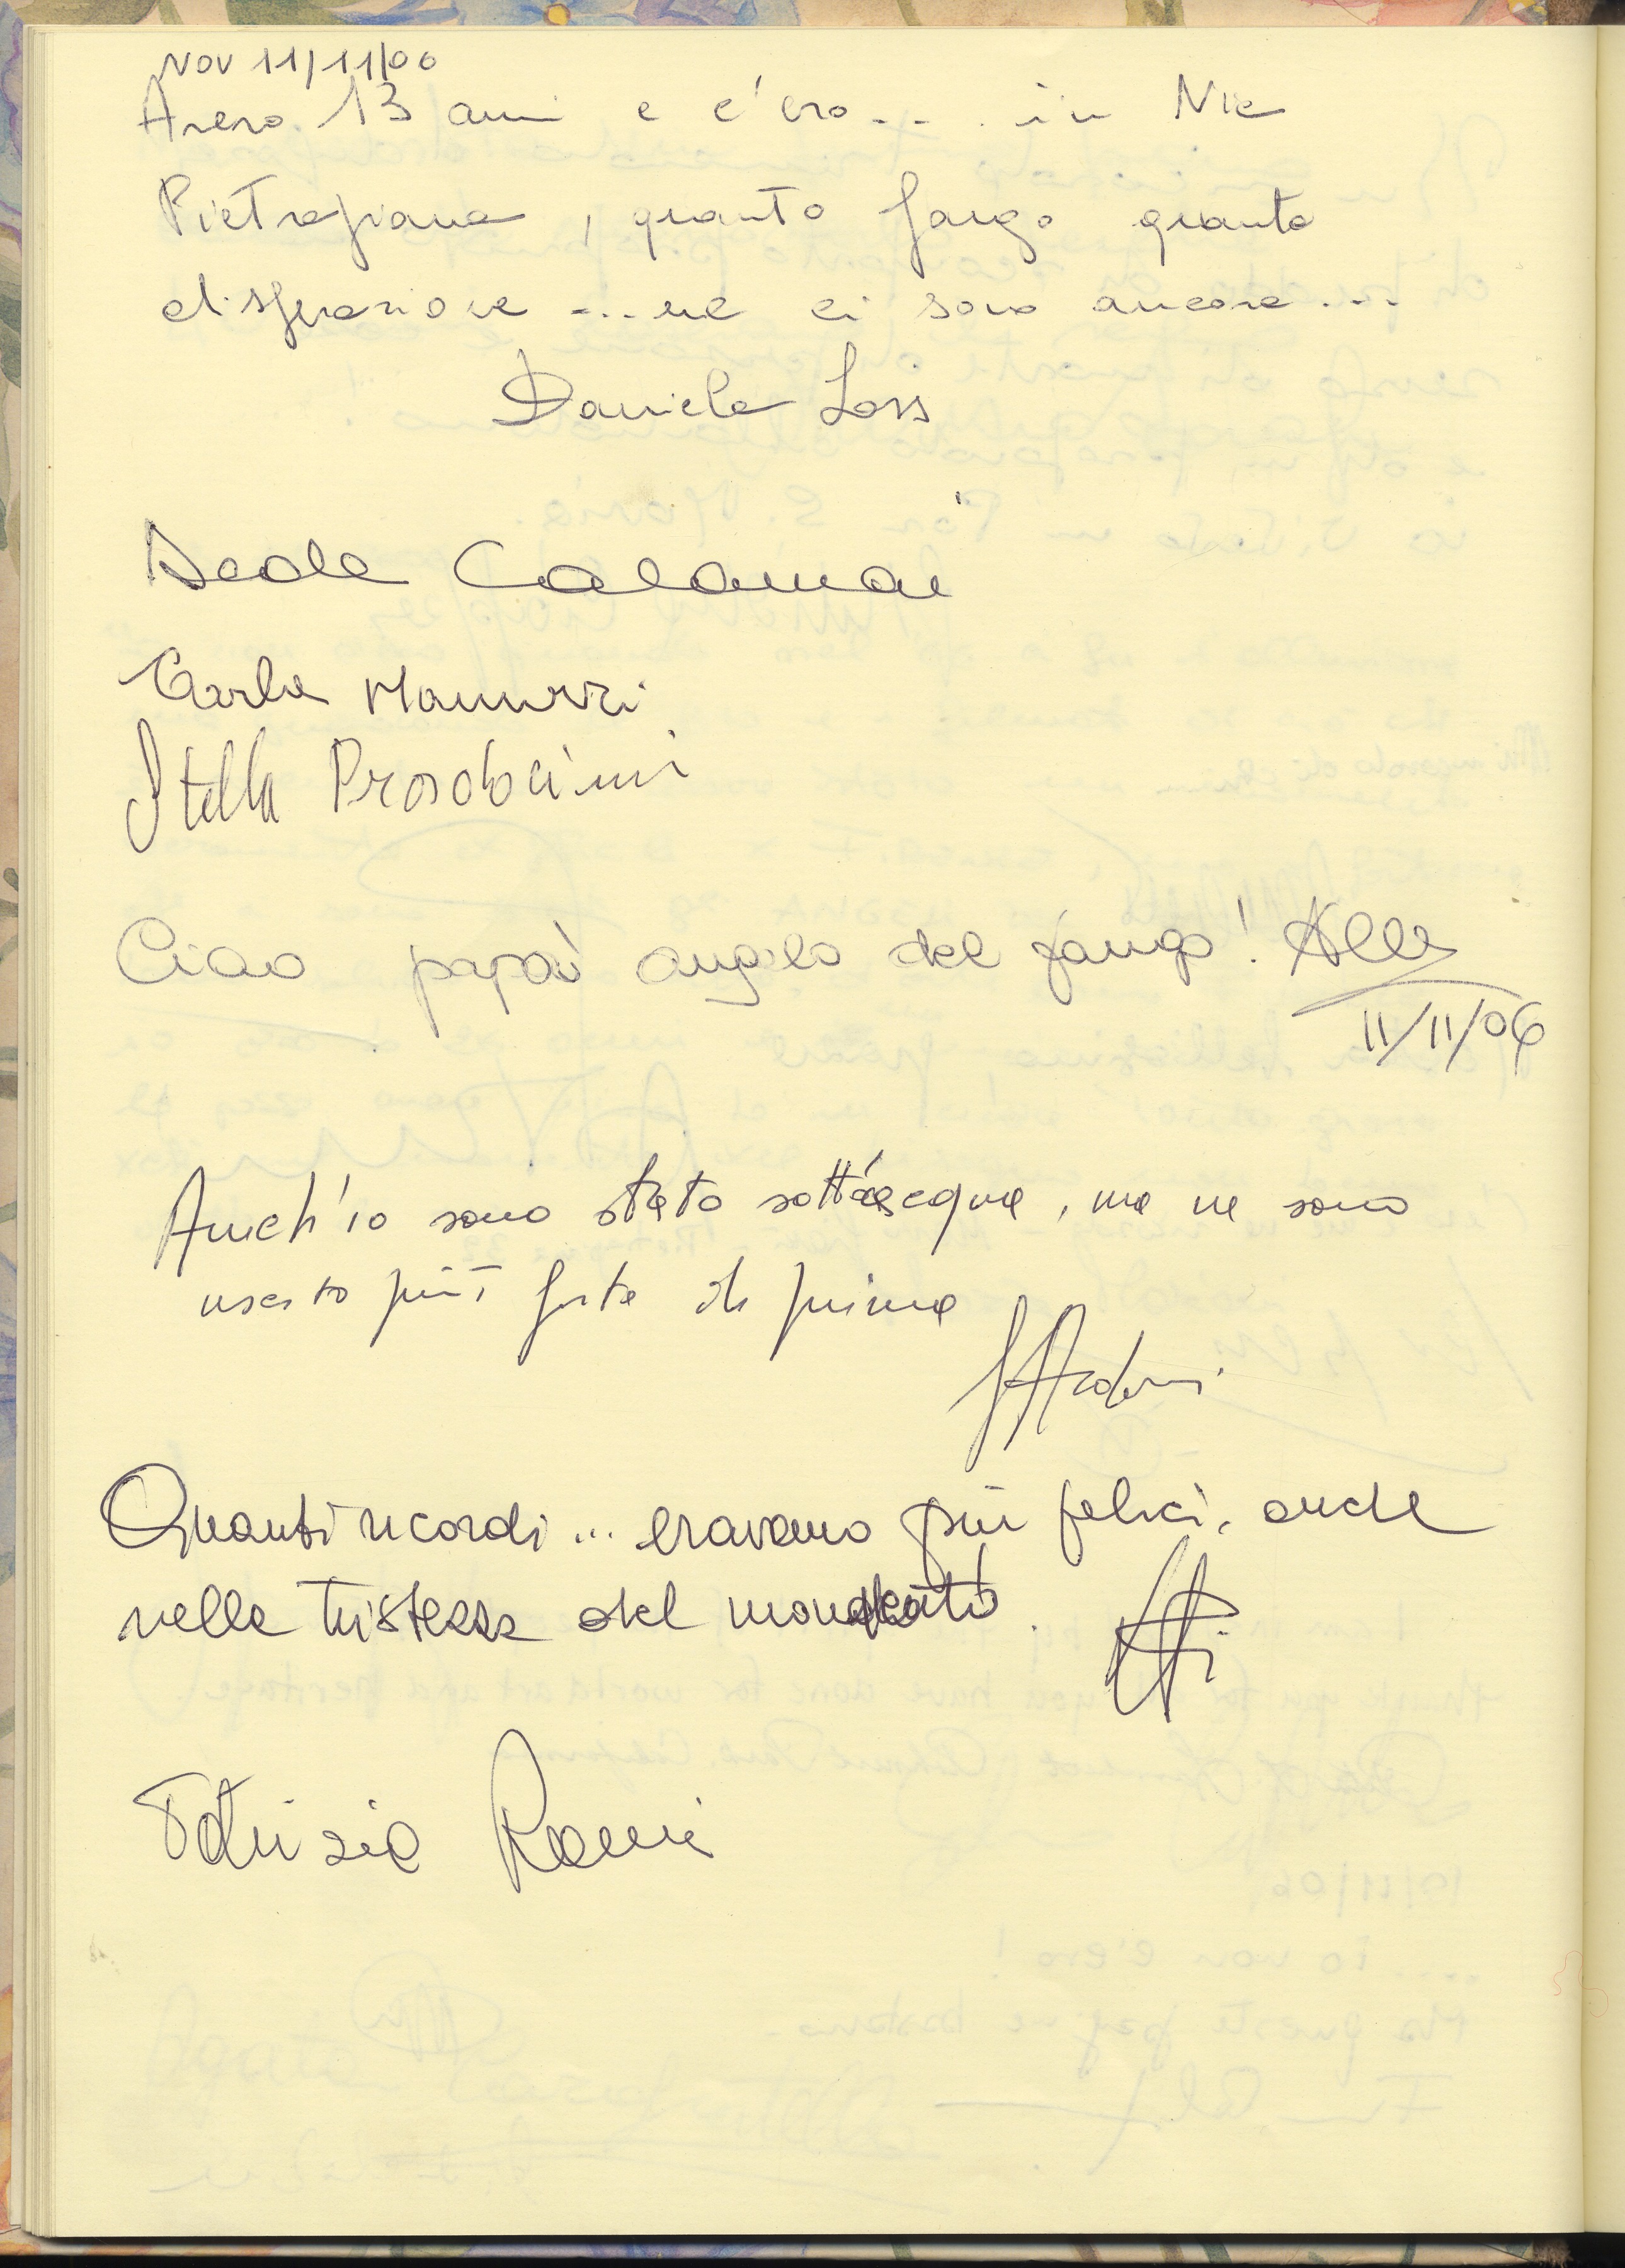 NOV 11/11/06
Avevo 13 anni e c'ero... in Via
Pietrapiana, quanto fango quanta
disperazione ... ma ci sono ancora ...
Daniela Loss
Calamai
Carla Mannuzzi
Stella Prosdocimi
Ciao papà angelo del fango! Alle
11/11/06
Anch'io sono stato sott'acqua, ma ne sono
uscito più forte di prima
Quanti ricordi... eravamo più felici, anche
nella tristezza del
Patrizia